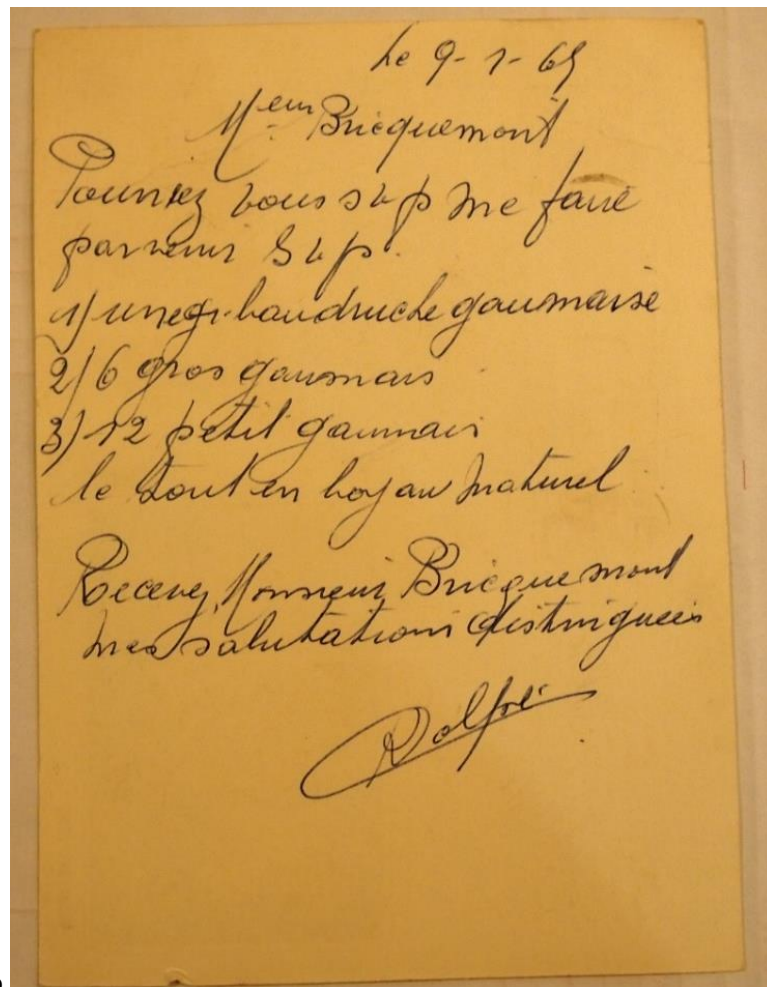 Le 9-1-65
Meur Bricquemont
Pouriez vous svp me faire
parvenir Svp.
1/ une gr. baudruche gaumaise
2/ 6 gros gaumais
3) 12 petit gaumais
le tout en boyau naturel
Recevez, Monsieur Bricquemont
mes salutations distinguées